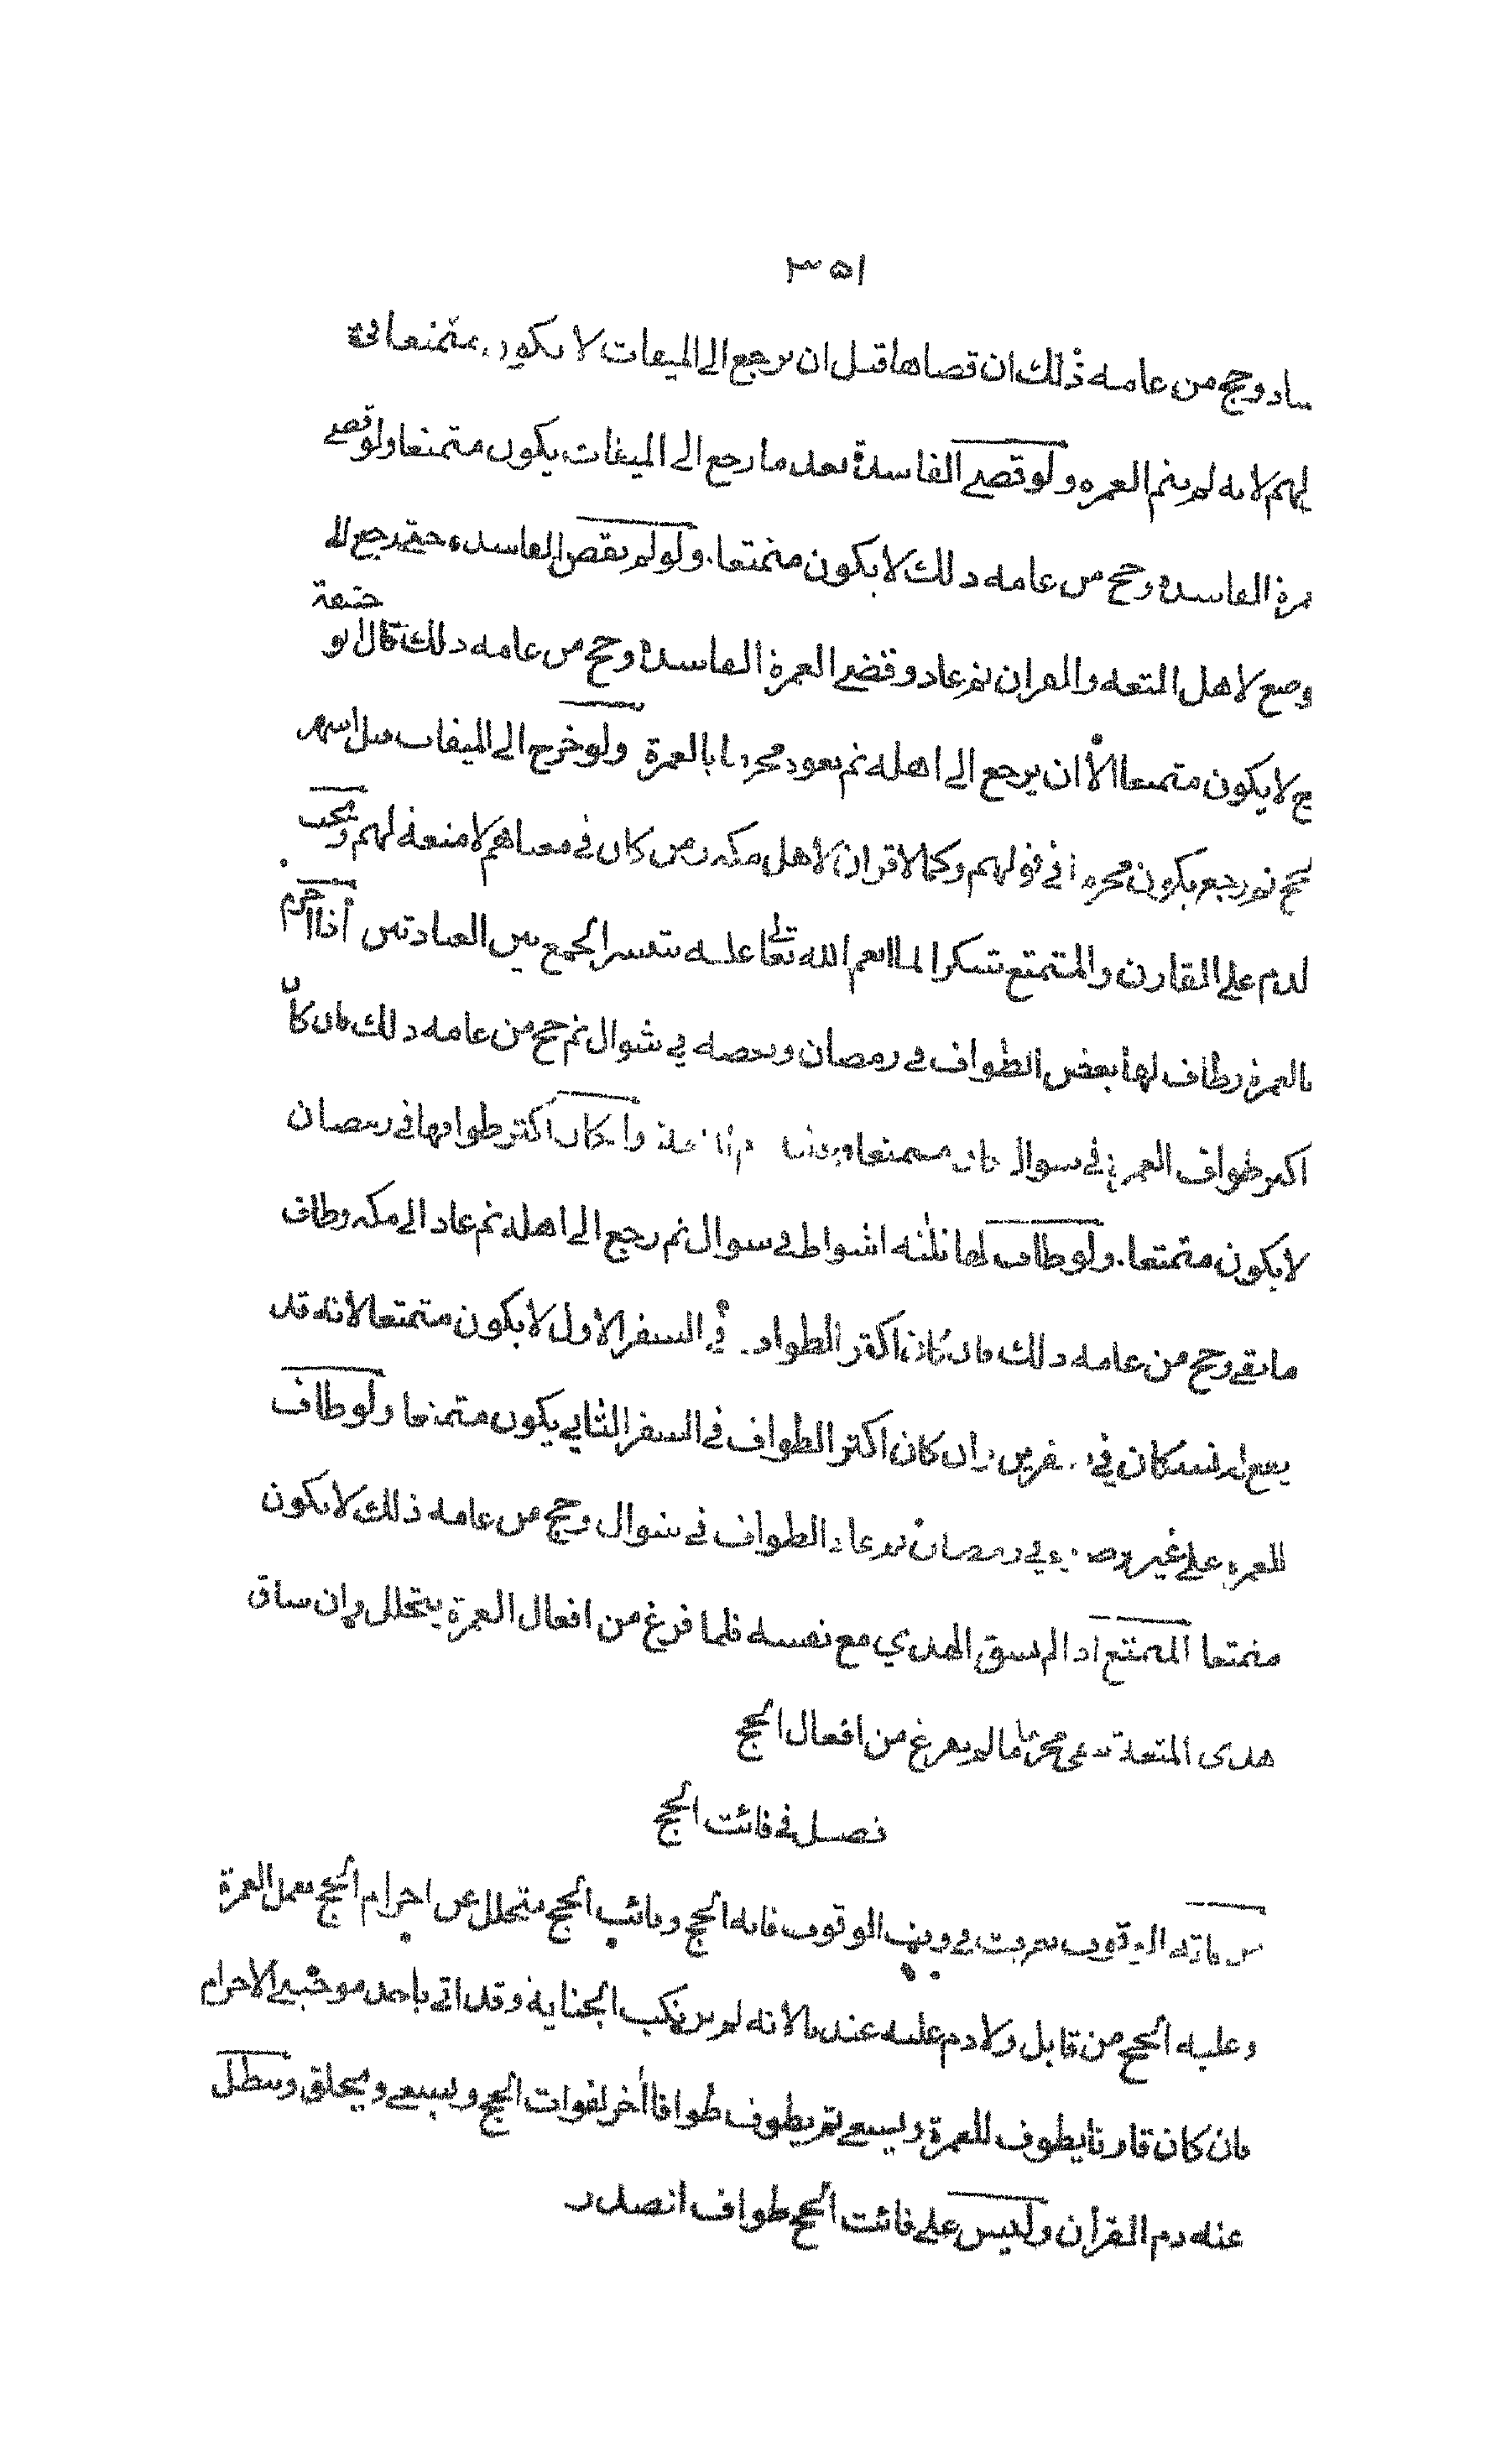 ٣٥١
وحج من عامه ذلك ان قضاها قبل ان يرجع الى الميقات لا يكون متمتعا في
لانه لم يتم العمرة ولو قضى الفاسدة بعد ما رجع الى الميقات يكون متمتعا ولو قضى
الفاسدة وحج من عامه ذلك لا يكون متمتعا. ولو لم يقض الفاسدة حتى رجع الى
لاهل المتعه والقران ثم عاد وقضى العمرة الفاسدة وحج من عامه ذلك قال ابو حنيفة
لا يكون متمتعا الا ان يرجع الى اهله ثم يعود محرما بالعمرة ولو خرج الى الميقات قبل اشهر
يكون في قولهم وكما لا قران لاهل مكه ومن كان في معناهم لا متعة لهم ويجب
الدم على القارن والمتمتع شكرا لما انعم الله تعالى عليه بتيسير الجمع بين العبادتين اذا احرم
بالعمرة وطاف لها بعض الطواف في رمضان وبعضه في شوال ثم حج من عامه ذلك فان كان
اكثر طواف العمرة في شوال كان متمتعا وان كان اكثر طوافها في رمضان
لا يكون متمتعا. ولو طاف لها ثلثه اشواط في شوال ثم رجع الى اهله ثم عاد الى مكه وطاف
ما بقي وحج من عامه ذلك فان كان اكثر الطواف في السفر الاول لا يكون متمتعا لانه قد
نسكان في سفرين وان كان اكثر الطواف في السفر الثاني يكون متمتعا ولو طاف
للعمره على غير وضوء في رمضان ثم عاد الطواف في شوال وحج من عامه ذلك لا يكون
متمتعا المتمتع اذا لم يسق الهدي مع نفسه فلما فرغ من افعال العمرة يتحلل وان ساق
هدى المتعة يبقى محرما ما لم يفرغ من افعال الحج
فصل في فائت الحج
من فاته الوقوف بعرفات في وقت الوقوف فاته الحج وفائت الحج يتحلل عن احرام الحج بعمل العمرة
وعليه الحج من قابل ولا دم عليه عندنا لانه لم يرتكب الجناية وقد اتى باحد موجبي الاحرام
فان كان قارنا يطوف للعمرة ويسعى ثم يطوف طوافا اخر لفوات الحج ويسعى ويحلق وبطل
عنه دم القرأن وليس على فائت الحج طواف الصدر